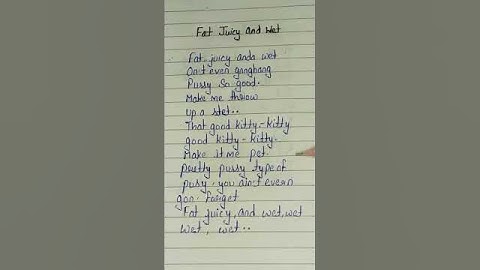 Fat Juicy and Wet
Fat juicy anda wet
On't even gangbang
Pussy So good.
Make me throw
up a stet..
That good kitty-kitty
good kitty-kitty.
Make it me pet.
pretty pussy type of
pussy. you ain't evern
gon. forget
Fat juicy, and wet, wet
wet, wet..